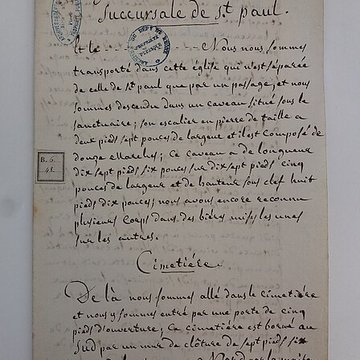 succursale de st paul.
Et le Nous nous sommes
transporté dans cette église qui n'est séparée
de celle de St paul que par un passage, et nous
sommes descendu dans un caveau situé sous le
sanctuaire; son escalier en pierre de taille a
deux pieds sept pouces de largeur et il est composé de
douze Marches; Ce caveau a de longueur
dix sept pieds six pouces sur dix sept pieds cinq
pouces de largeur et de hauteur sous clef huit
pieds dix pouces, nous avons encore reconnu
plusieurs Corps dans des bières mises les unes
sur les autres.
B. 6.
Cimetiére.
De là nous sommes allé dans le cimetiére
et nous y sommes entré par une porte de cinq
pieds d'ouverture; Ce cimetiére est borné au
Sud par un mur de clôture de sept pieds six